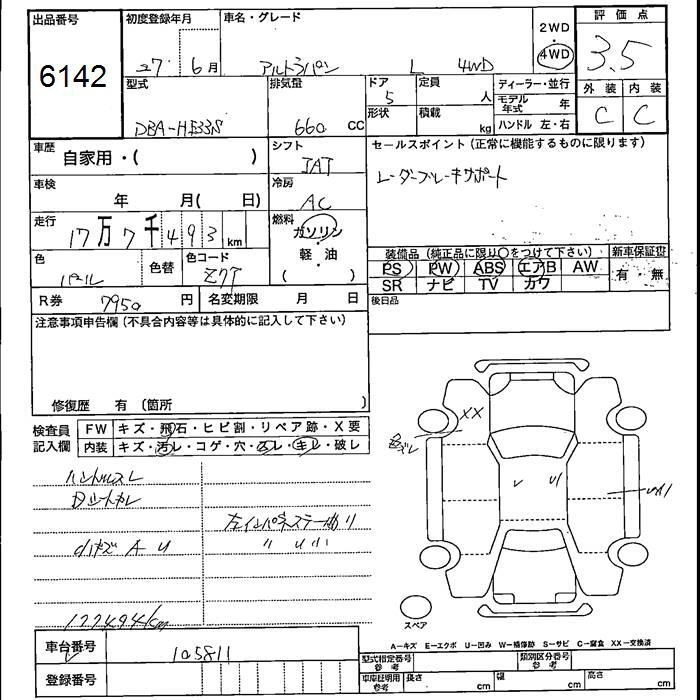 出品番号
6142
初度登録年月
27年 6月
車名・グレード
アルトラパン L 4WD
2WD
・
4WD
評価点
3.5
外装 内装
C C
型式
DBA-HE33S
排気量
660 CC
ドア
5
形状
定員
人
積載
kg
ディーラー・並行
モデル年式 年
ハンドル 左・右
車歴
自家用・( )
シフト
IAT
セールスポイント(正常に機能するものに限ります)
レーダーブレーキサポート
車検
年 月( 日)
冷房
AC
走行
17万7千493km
燃料
ガソリン
軽・油
( )
色
パール
色替
色コード
Z7T
装備品(純正品に限り○をつけて下さい)
PS PW ABS エアB AW
SR ナビ TV カワ
新車保証書
有・無
R券 7950円
名変期限 月 日
後日品
注意事項申告欄(不具合内容等は具体的に記入して下さい)
修復歴 有 〔箇所
検査員
記入欄
FW キズ・飛石・ヒビ割・リペア跡・X要
内装 キズ・汚レ・コゲ・穴・スレ・キレ・破レ
ハンドルスレ
小キズ A U
177494km
XX
スペア
A-キズ E-エクボ U-凹み W-補修跡 S-サビ C-腐食 XX-交換済
車台番号
105811
登録番号
型式指定番号
参考
類別区分番号
参考
車庫証明用
参考
長さ cm
幅 cm
高さ cm